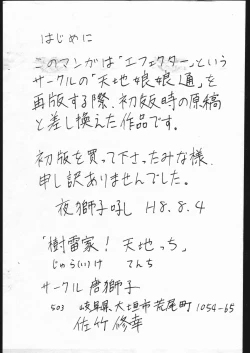 はじめに
このマンガは「エフェクター」という
サークルの「天地娘娘通」を
再版する際、初版時の原稿
と差し換えた作品です。
初版を買って下さったみな様、
申し訳ありませんでした。
夜獅子吼し H8.8.4
「樹雷家! 天地っち」
じゅらいけ てんち
サークル 唐獅子
503 岐阜県大垣市荒尾町1054-65
佐竹修幸